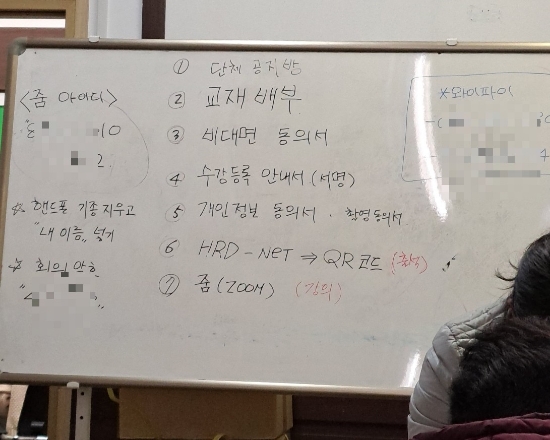 <줌 아이디>
10
2
※ 핸드폰 기종 지우고
"내 이름" 넣기
※ 회의 암호
① 단체 공지방
② 교재 배부
③ 비대면 동의서
④ 수강등록 안내서 (서명)
⑤ 개인정보 동의서 · 촬영동의서
⑥ HRD-NET ⇒ QR코드 (출석)
⑦ 줌 (ZOOM) (강의)
※와이파이